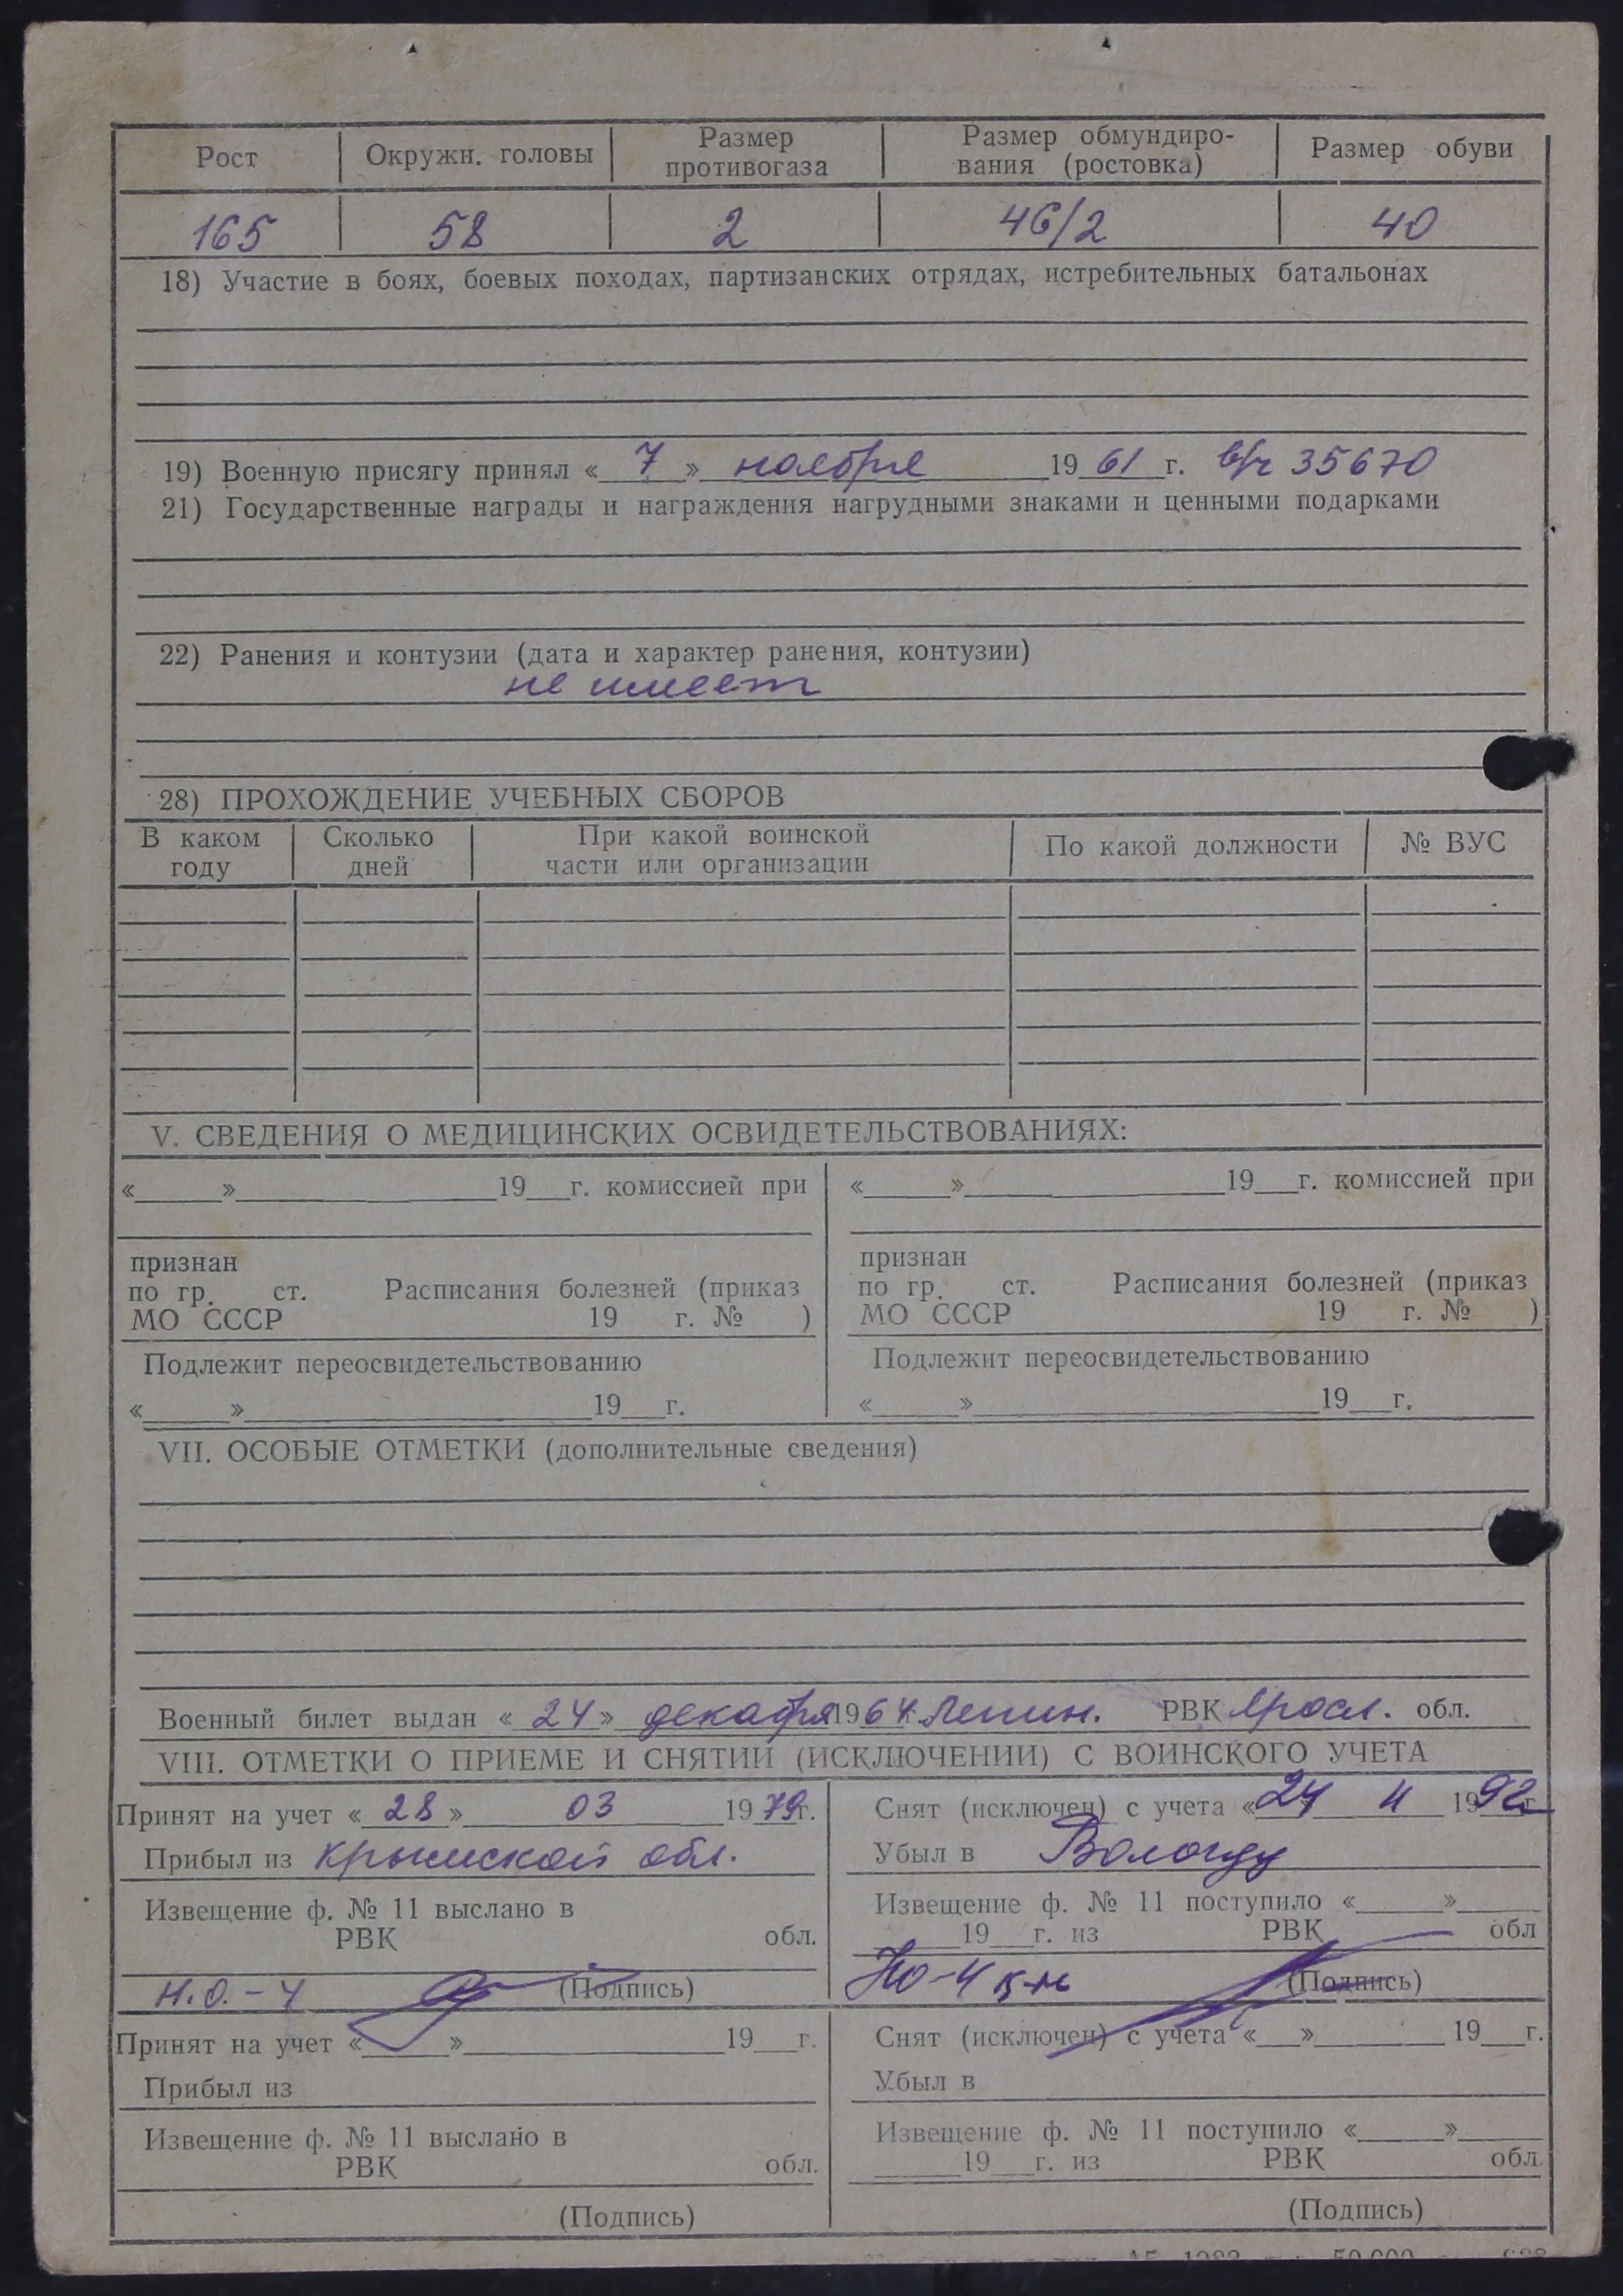 Рост Окружн. головы Размер противогаза Размер обмундиро-вания (ростовка) Размер обуви
165 58 2 46/2 40
18) Участие в боях, боевых походах, партизанских отрядах, истребительных батальонах
19) Военную присягу принял « 7 » ноября 19 61 г. в/ч 35670
21) Государственные награды и награждения нагрудными знаками и ценными подарками
22) Ранения и контузии (дата и характер ранения, контузии)
не имеет
28) ПРОХОЖДЕНИЕ УЧЕБНЫХ СБОРОВ
В каком году Сколько дней При какой воинской части или организации По какой должности № ВУС
V. СВЕДЕНИЯ О МЕДИЦИНСКИХ ОСВИДЕТЕЛЬСТВОВАНИЯХ:
«___»___19__г. комиссией при «___»___19__г. комиссией при
признан признан
по гр. ст. Расписания болезней (приказ по гр. ст. Расписания болезней (приказ
МО СССР 19 г. № ) МО СССР 19 г. № )
Подлежит переосвидетельствованию Подлежит переосвидетельствованию
«___»___19__г. «___»___19__г.
VII. ОСОБЫЕ ОТМЕТКИ (дополнительные сведения)
Военный билет выдан « 24 » декабря 1964 Ленин. РВК Яросл. обл.
VIII. ОТМЕТКИ О ПРИЕМЕ И СНЯТИИ (ИСКЛЮЧЕНИИ) С ВОИНСКОГО УЧЕТА
Принят на учет « 28 » 03 1979г. Снят (исключен) с учета «24 11 1992г.
Прибыл из Крымской обл. Убыл в Вологду
Извещение ф. № 11 выслано в Извещение ф. № 11 поступило «___»___
РВК обл. ___19__г. из РВК обл
Н.О.-4 (Подпись) НО-4 (Подпись)
Принят на учет «___»___19__г. Снят (исключен) с учета «__»___19__г.
Прибыл из Убыл в
Извещение ф. № 11 выслано в Извещение ф. № 11 поступило «___»___
РВК обл. ___19__г. из РВК обл.
(Подпись) (Подпись)